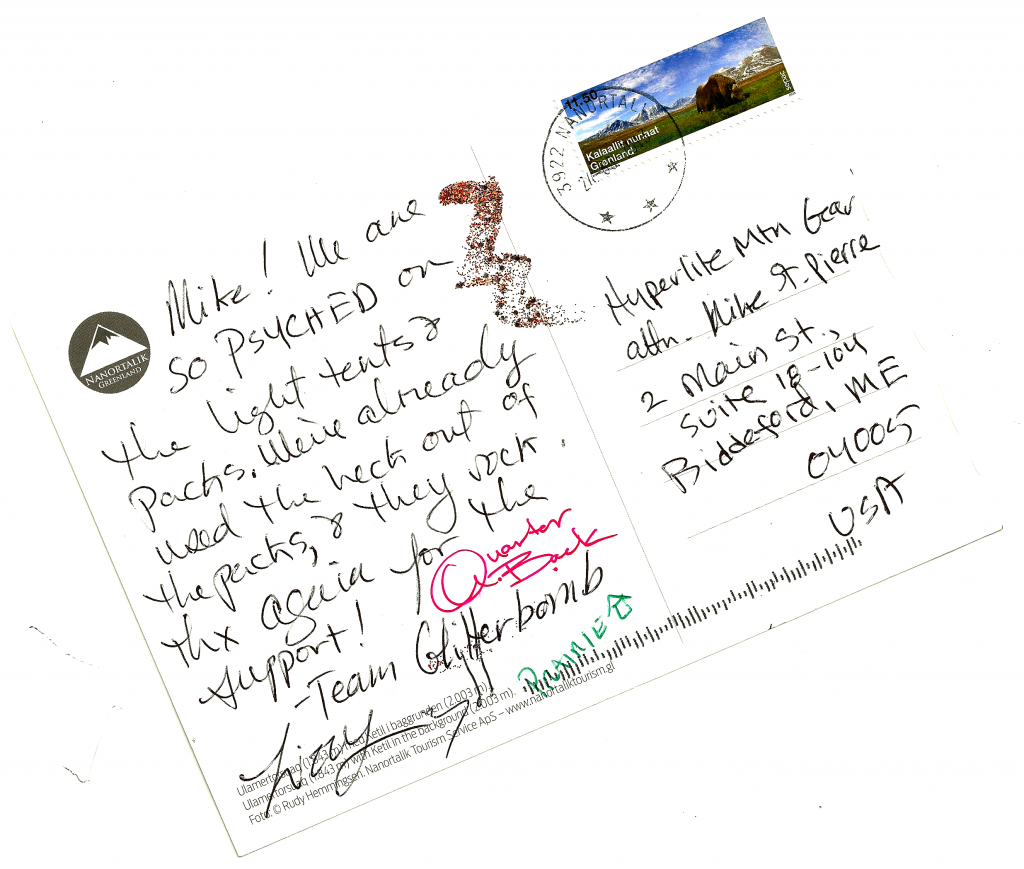 Mike! We are
SO PSYCHED on
the light tents &
packs. We've already
used the heck out of
the packs, & they rock.
thx again for the
support!
-Team Glitterbomb
Quarter
Q. Back
PRAIRIE
Lizzy
NANORTALIK
GREENLAND
Ulamertorsuaq (1.843 m) med Ketil i baggrunden (2.003 m).
Ulamertorsuaq (1.843 m) with Ketil in the background (2.003 m).
Foto: © Rudy Hemmingsen. Nanortalik Tourism Service ApS – www.nanortaliktourism.gl
11.50
Kalaallit nunaat
Grønland
3922 NANORTALIK
Hyperlite Mtn Gear
attn. Mike St. Pierre
2 Main St.,
Suite 18-104
Biddeford, ME
04005
USA